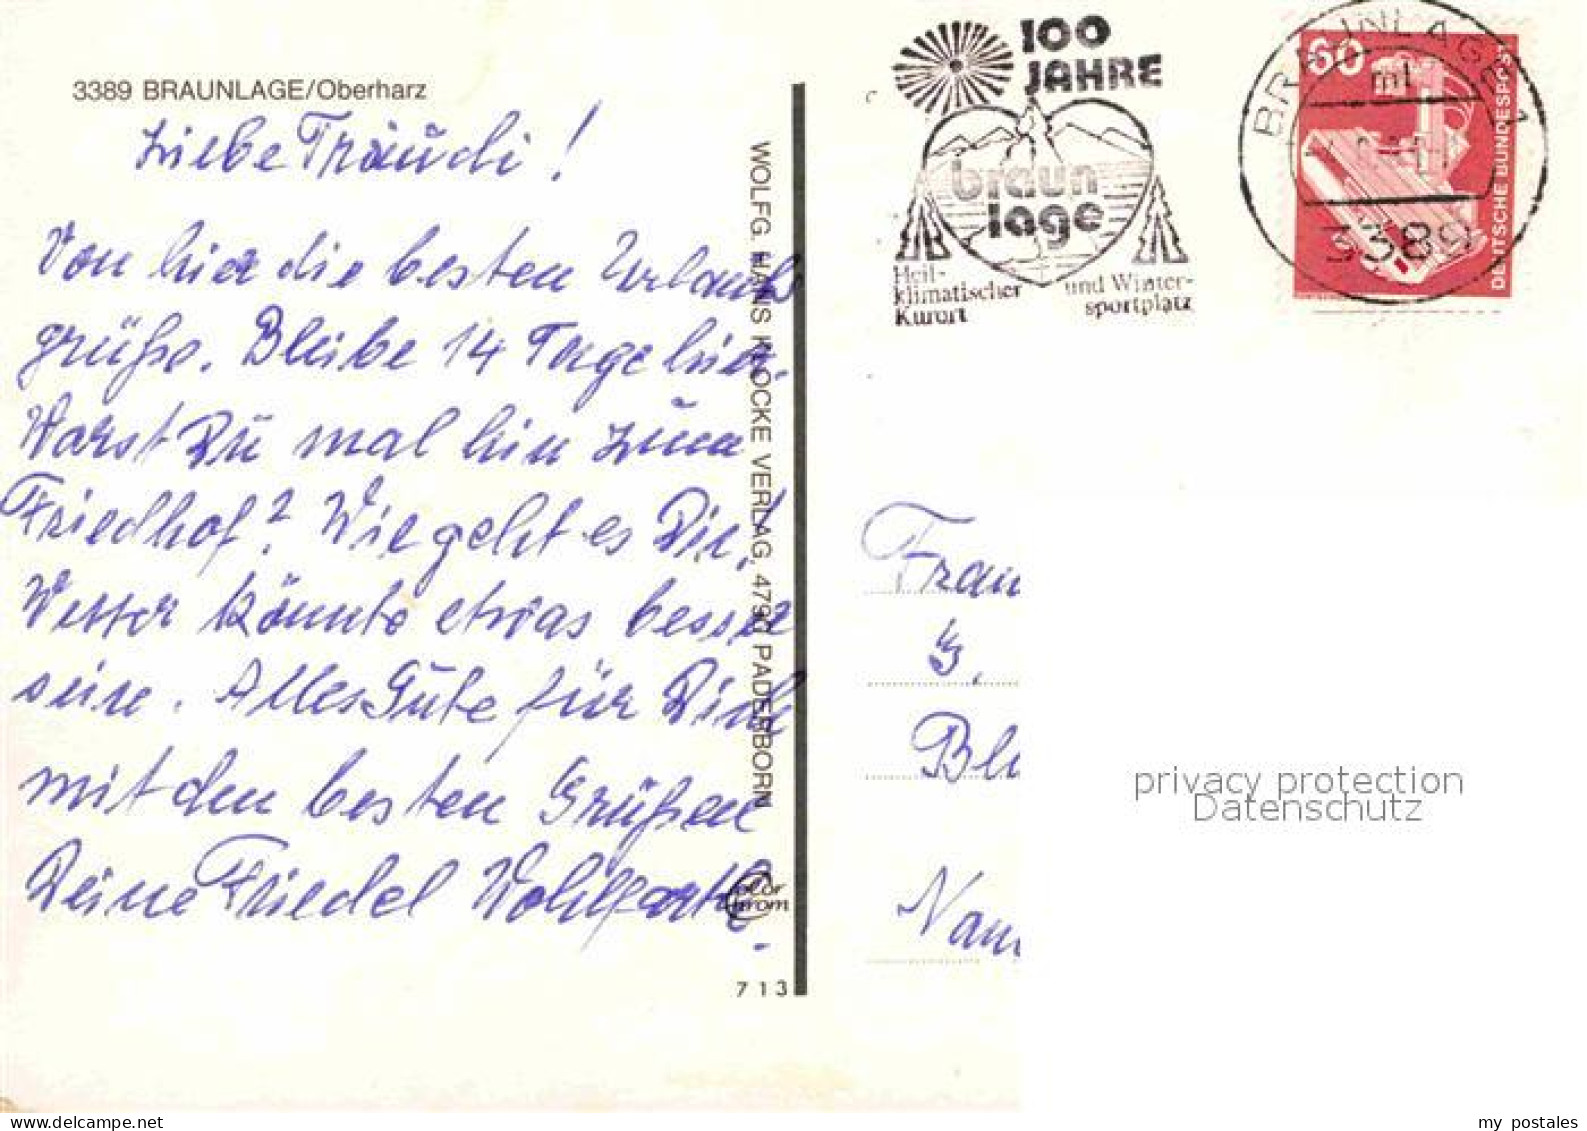 3389 BRAUNLAGE/Oberharz
Liebe Träudi!
Von hier die besten Urlaubs
grüße. Bleibe 14 Tage hier.
Warst Du mal hin zum
Friedhof? Wie geht es Dir!
Wetter könnte etwas besser
sein. Alles Gute für Dich
mit den besten Grüßen
Deine Friedel Wohlfarth.
WOLFG. HANS KLOCKE VERLAG, 4790 PADERBORN
color
chrom
713
100
JAHRE
braun
lage
Heil-
klimatischer
Kurort
und Winter-
sportplatz
BRAUNLAGE 1
3389
60
DEUTSCHE BUNDESPOST
Frau
G.
Bl
Nan
privacy protection
Datenschutz
my postales